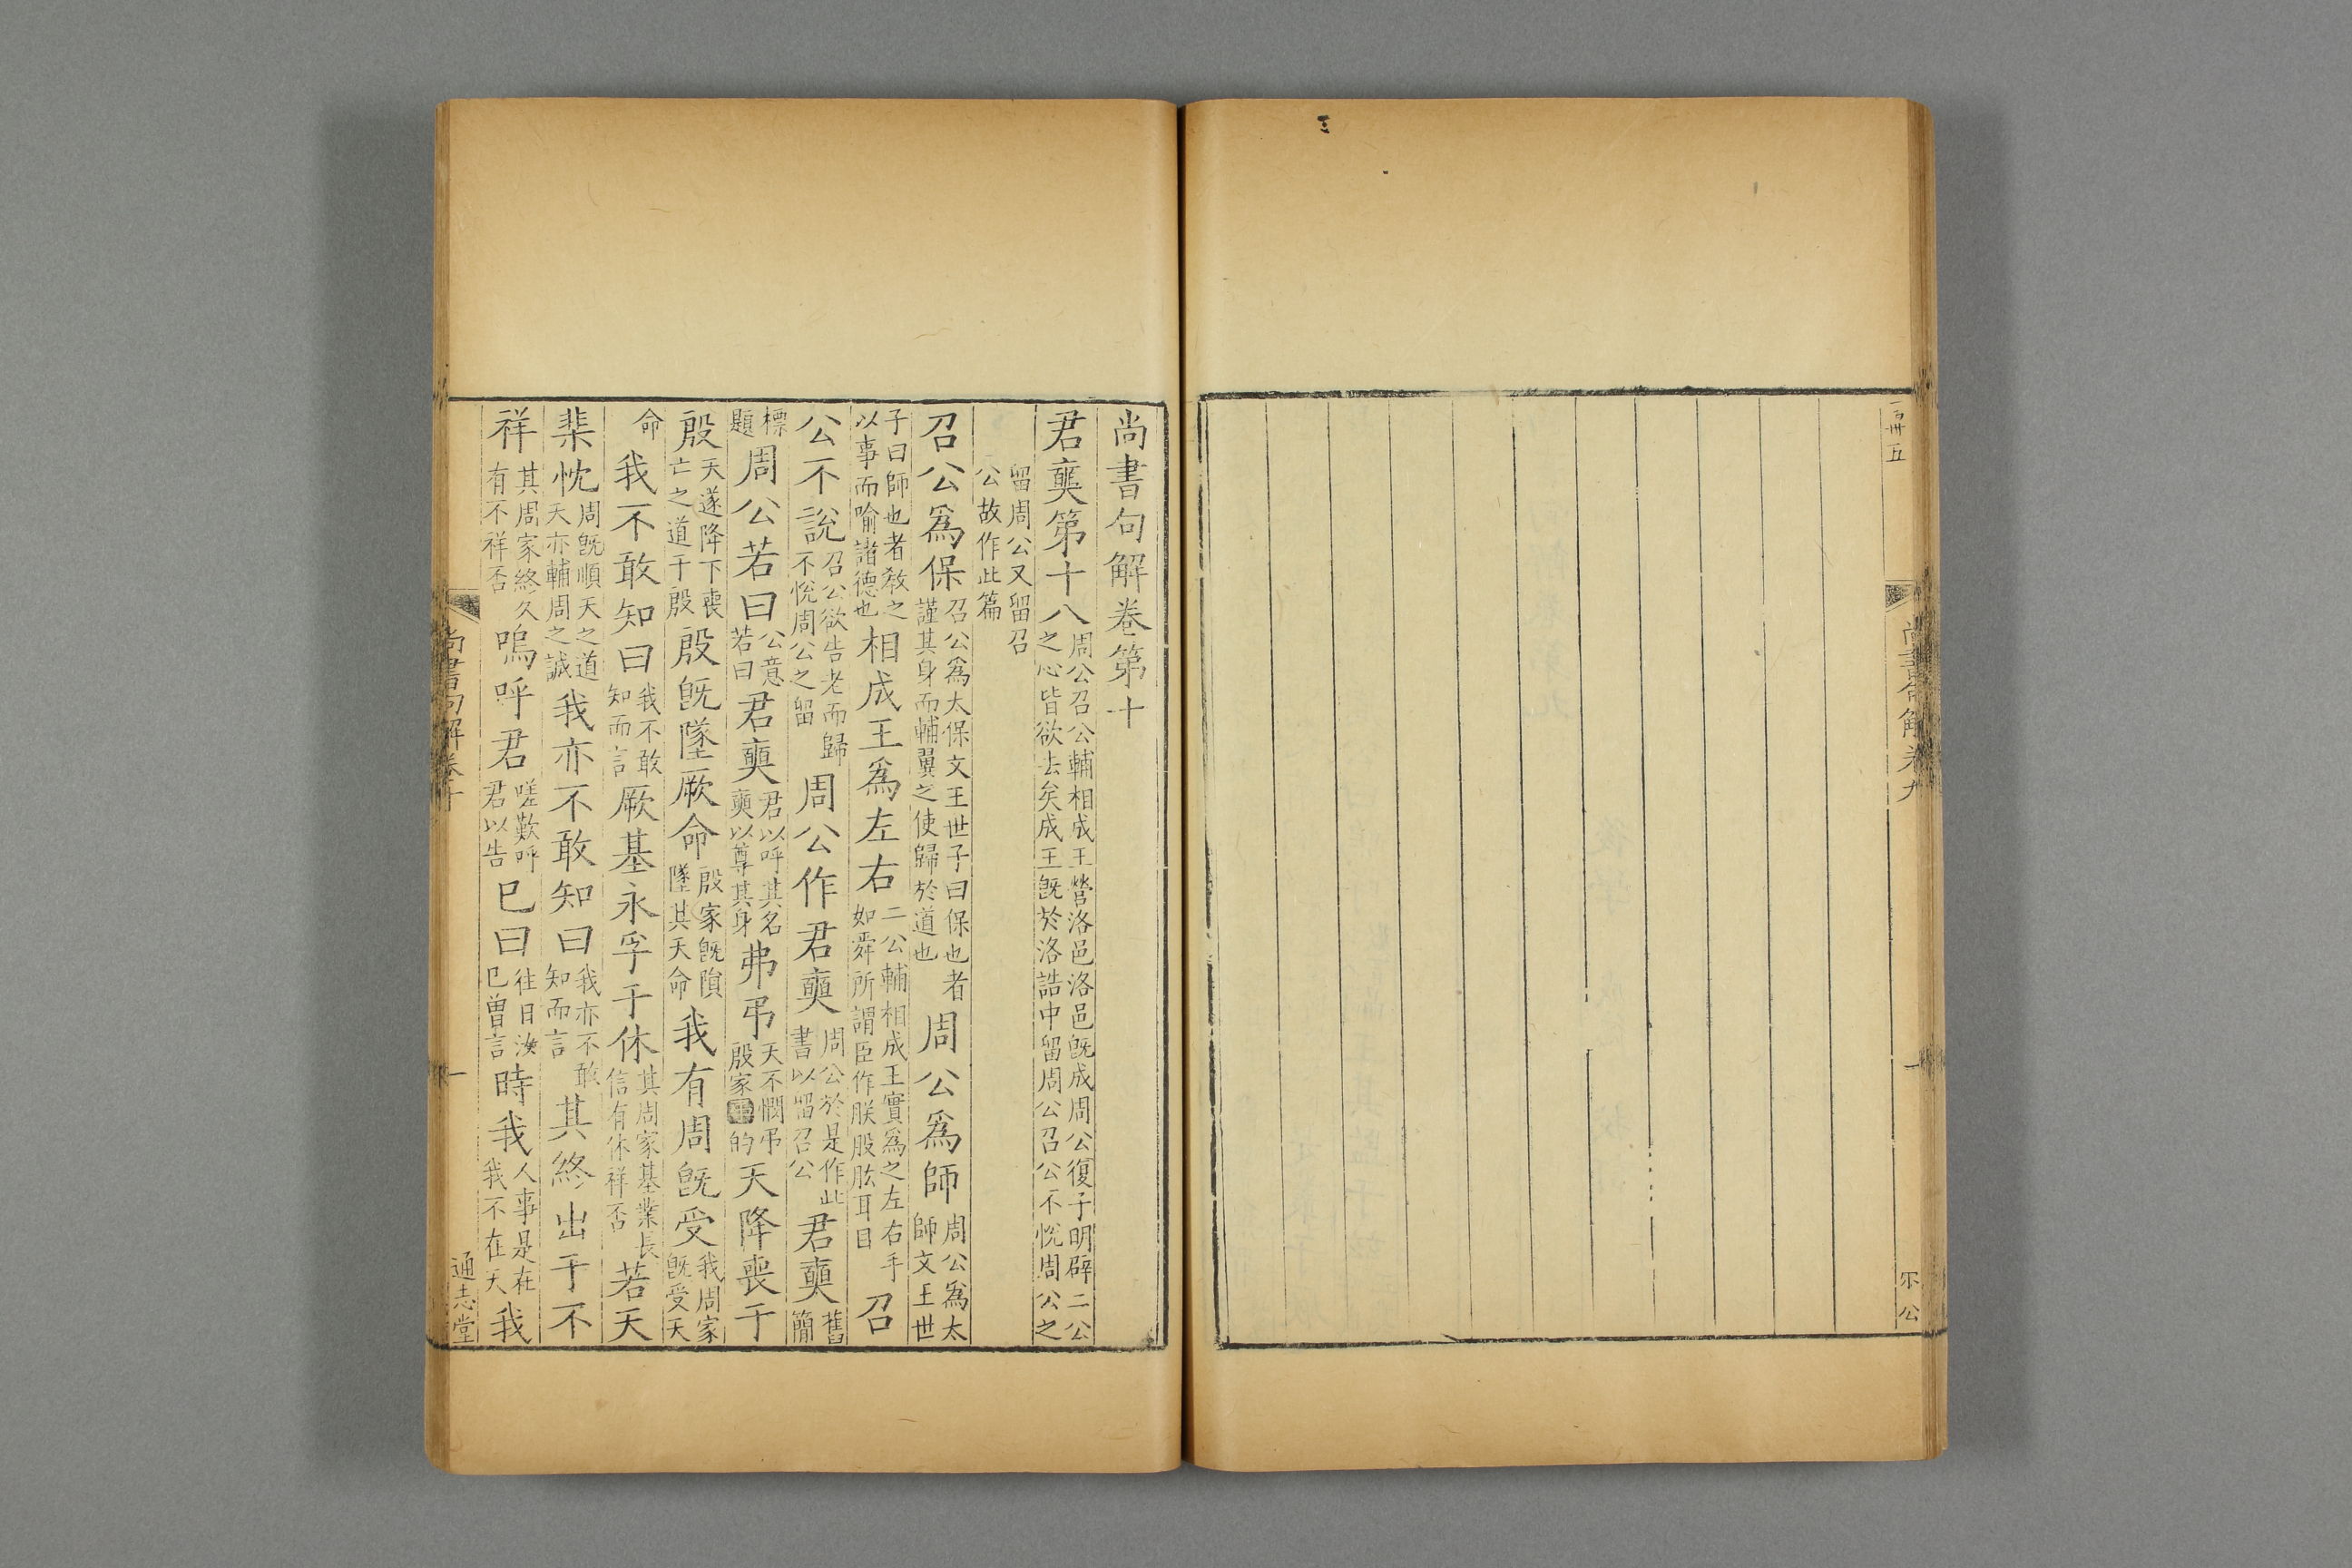 尚書句解卷九
一
尚書句解卷第十
君奭第十八周公召公輔相成王營洛邑洛邑旣成周公復子明辟二公之心皆欲去矣成王旣於洛誥中留周公召公不悅周公之
留周公又留召公故作此篇
召公爲保召公爲太保文王世子曰保也者謹其身而輔翼之使歸於道也周公爲師周公爲太師文王世
子曰師也者敎之以事而喻諸德也相成王爲左右二公輔相成王實爲之左右手如舜所謂臣作朕股肱耳目召
公不說召公欲告老而歸不悅周公之留周公作君奭周公於是作此書以留召公君奭舊簡
標題周公若曰公意若曰君奭君以呼其名奭以尊其身弗弔天不憫弔殷家的天降喪于
殷天遂降下喪亡之道于殷殷旣墜厥命殷家旣隕墜其天命我有周旣受我周家旣受天
命我不敢知曰我不敢知而言厥基永孚于休其周家基業長信有休祥否若天
棐忱周旣順天之道天亦輔周之誠我亦不敢知曰我亦不敢知而言其終出于不
祥其周家終久有不祥否嗚呼君嗟歎呼君以告已曰往日汝已曾言時我人事是在我不在天我
尚書句解卷十
一
通志堂